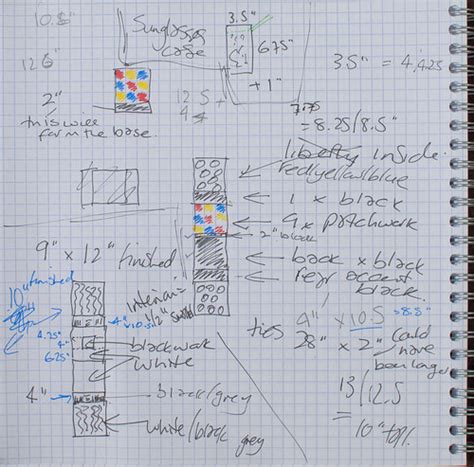 10.5"
Sunglasses
case
3.5"
6.75"
+1"
3.5" = 4/4.25
12.5"
2"
this will
form the base.
12.5
+
4
7.75
=8.25/8.5"
liberty inside
red/yellow/blue
1 x black
9 x patchwork
2" black
back x black
repr accent
black.
9" x 12" finished
10" finished
interior =
1/2" small
4" x 10.5
4.25"
4"
6.25"
blackwork
white
4"
black/grey
white/black grey
4" x 10.5
=8.5"
ties
28" x 2"
could
have
been longer
13/12.5
=
10" topl.